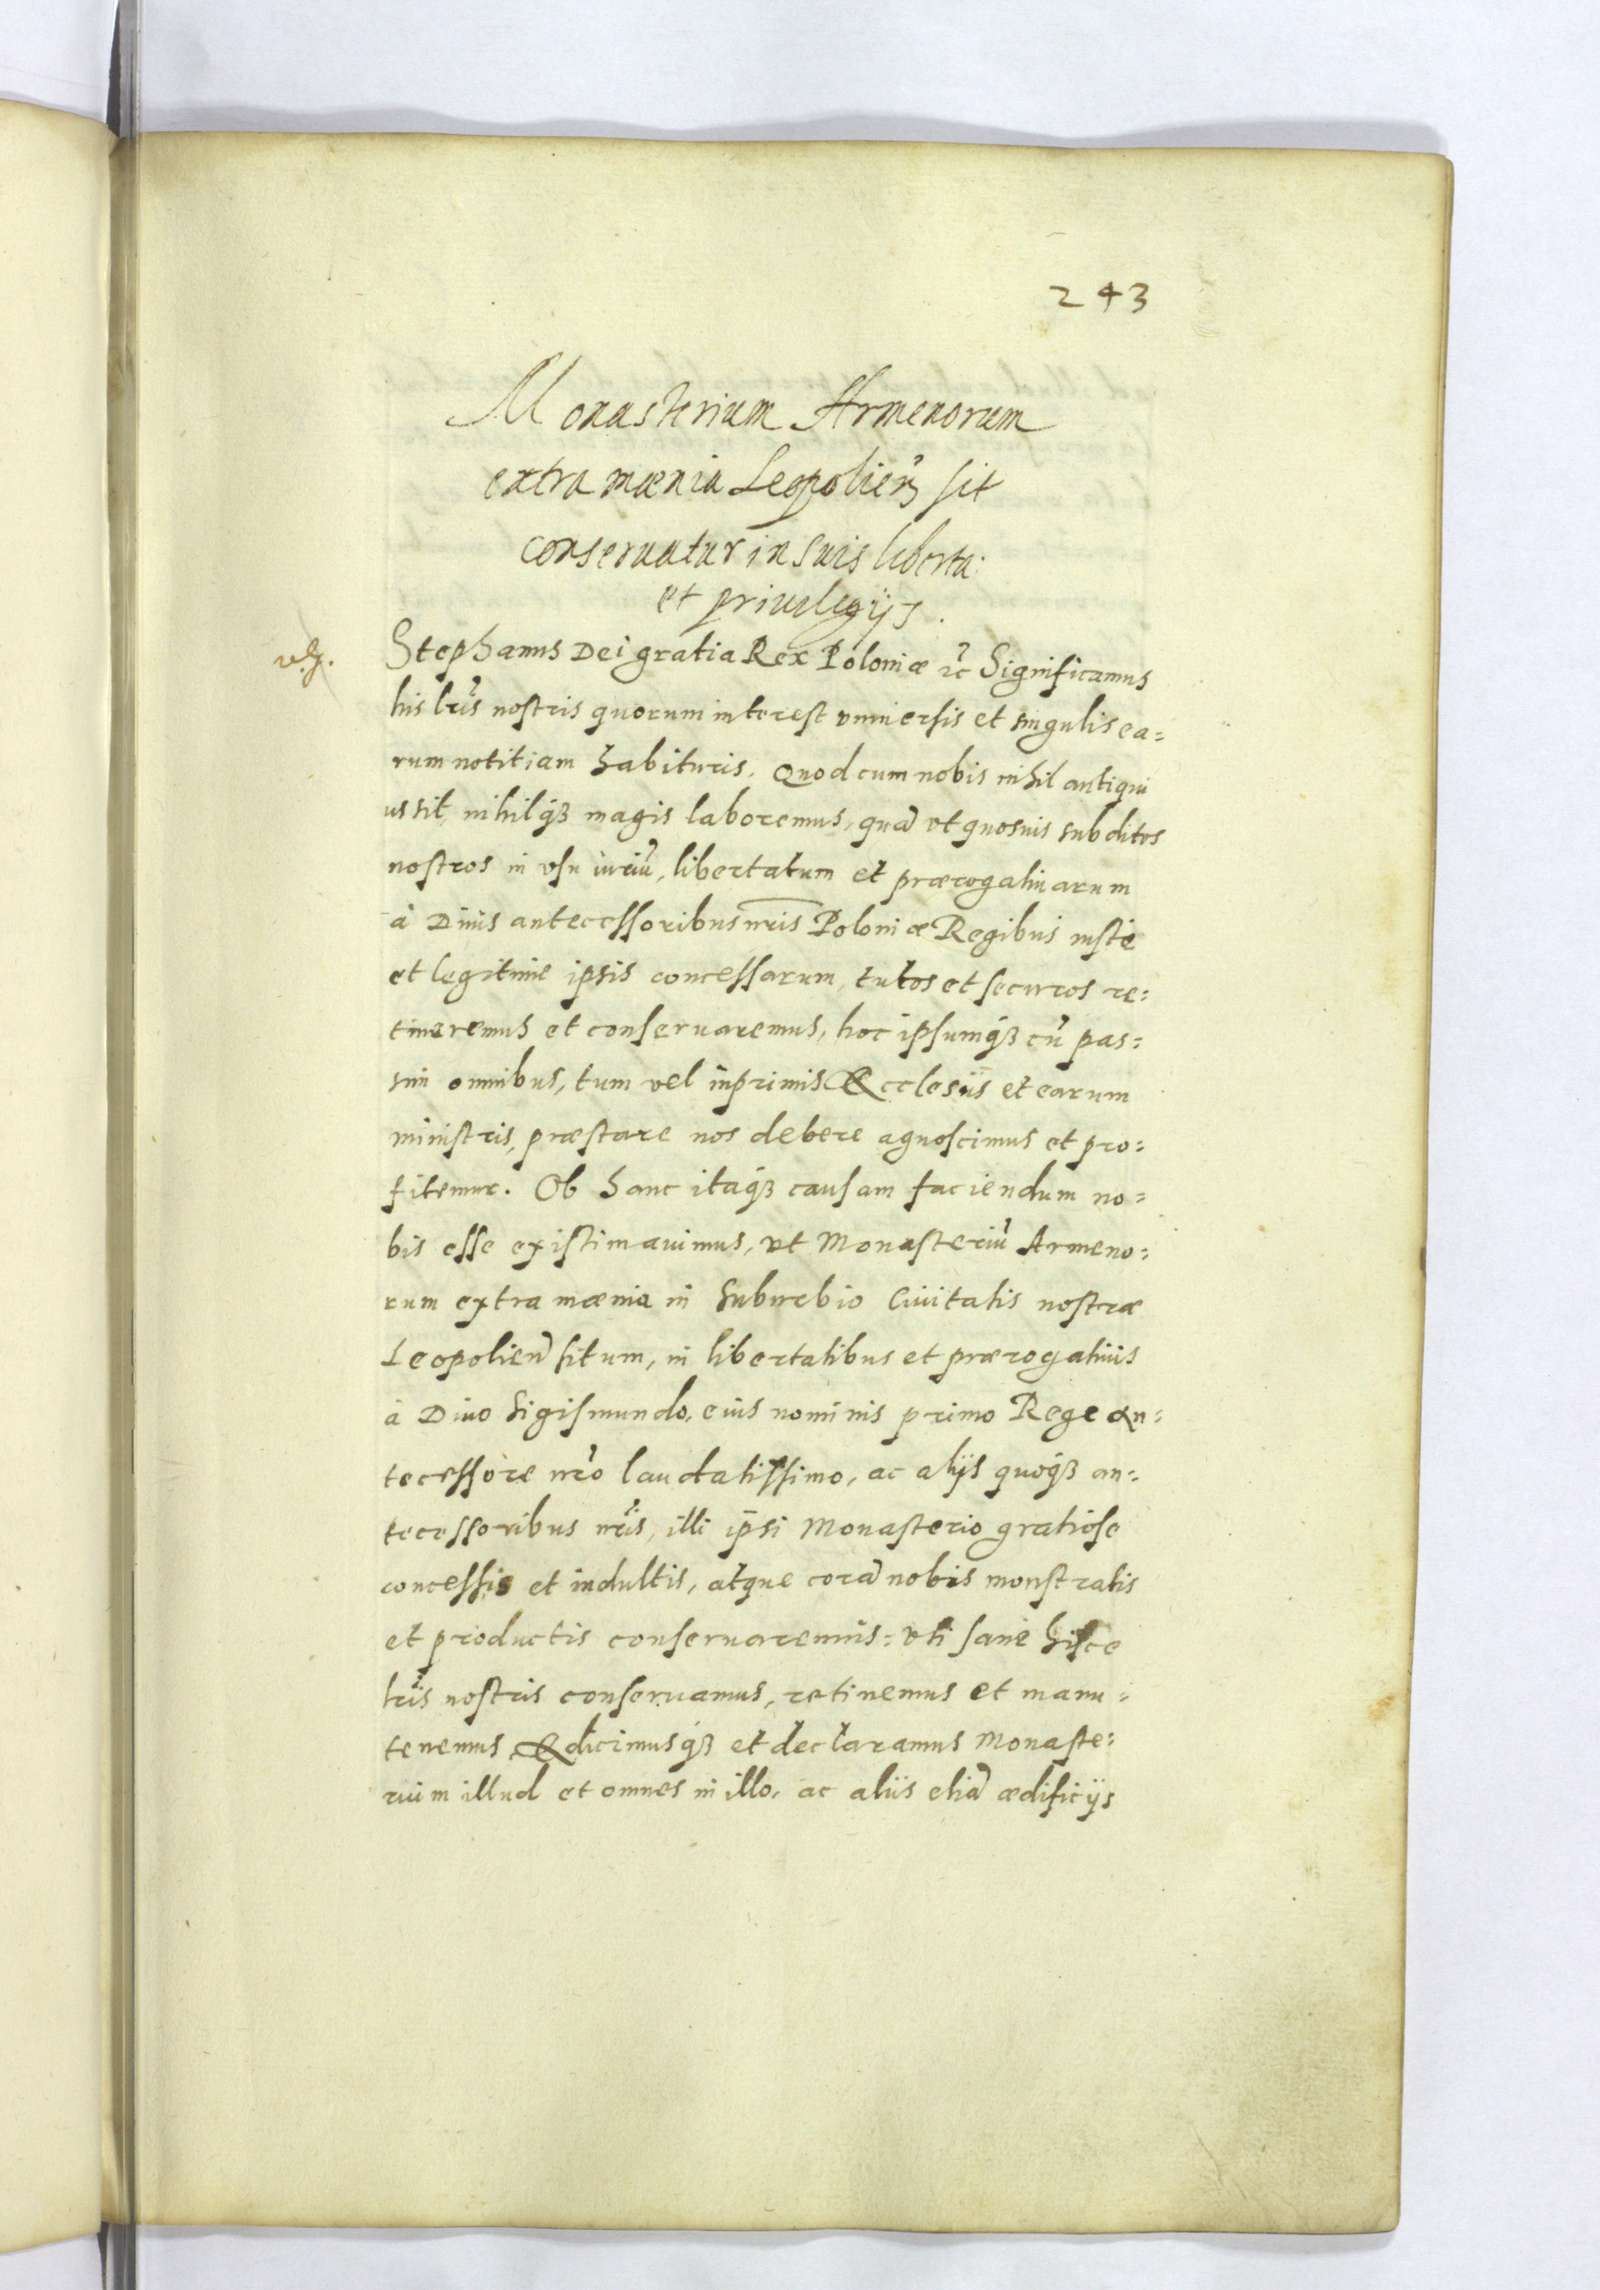 243
Monasterium Armenorum
extra mœnia Leopolien̄ sit
conseruatur in suis liberta:
et priuilegijs.
Stephanus Dei gratia Rex Poloniæ ꝛc̄ Significamus
his lr̄is nostris quorum interest vniuersis et singulis ea=
rum notitiam habituris. Quod cum nobis nihil antiqui
us sit, nihilqȝ magis laboremus, quā vt quosuis subditos
nostros in vsu iuriū, libertatum et prærogatiuarum
à Diuis antecessoribus nr̄is Poloniæ Regibus iustè
et legitime ipsis concessarum, tutos et securos re=
tineremus et conseruaremus, hoc ipsumqȝ cū pas=
sim omnibus, tum vel inprimis Ecclesiis et earum
ministris, præstare nos debere agnoscimus et pro=
fitemur. Ob hanc itaqȝ causam faciendum no=
bis esse existimauimus, vt Monasteriū Armeno=
rum extra mœnia in suburbio Ciuitatis nostræ
Leopolien̄ situm, in libertatibus et prærogatiuis
à Diuo Sigismundo, eius nominis primo Rege an=
tecessore nr̄o laudatissimo, ac alijs quoqȝ an=
tecessoribus nr̄is, illi ipsi Monasterio gratiose
concessis et indultis, atque corā nobis monstratis
et productis conseruaremus: vti sane hisce
lr̄is nostris conseruamus, retinemus et manu=
tenemus, Edicimusqȝ et declaramus Monaste=
rium illud et omnes in illo, ac aliis etiā ædificijs